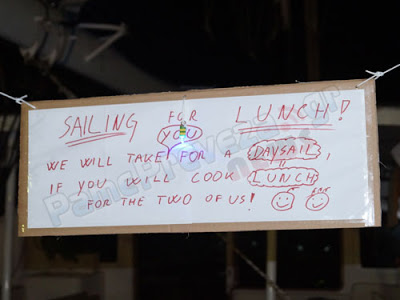 SAILING FOR LUNCH!
YOU
WE WILL TAKE FOR A DAYSAIL,
IF YOU WILL COOK LUNCH
FOR THE TWO OF US!
PamePreveza.gr